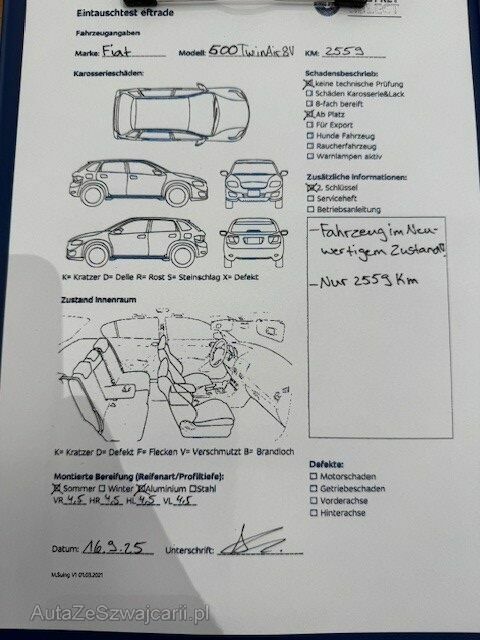 Eintauschtest eftrade
Fahrzeugangaben
Marke: Fiat Modell: 500 TwinAir 8V KM: 2559
Karosserieschäden:
K= Kratzer D= Delle R= Rost S= Steinschlag X= Defekt
Zustand Innenraum
K= Kratzer D= Defekt F= Flecken V= Verschmutzt B= Brandloch
Montierte Bereifung (Reifenart/Profiltiefe):
Sommer Winter Aluminium Stahl
VR 4,5 HR 4,5 HL 4,5 VL 4,5
Schadensbeschrieb:
keine technische Prüfung
Schäden Karosserie&Lack
8-fach bereift
Ab Platz
Für Export
Hunde Fahrzeug
Raucherfahrzeug
Warnlampen aktiv
Zusätzliche Informationen:
2. Schlüssel
Serviceheft
Betriebsanleitung
- Fahrzeug im Neu-
wertigem Zustand!!
- Nur 2559 Km
Defekte:
Motorschaden
Getriebeschaden
Vorderachse
Hinterachse
Datum: 16.9.25 Unterschrift:
M.Suing V1 01.03.2021
AutaZeSzwajcarii.pl